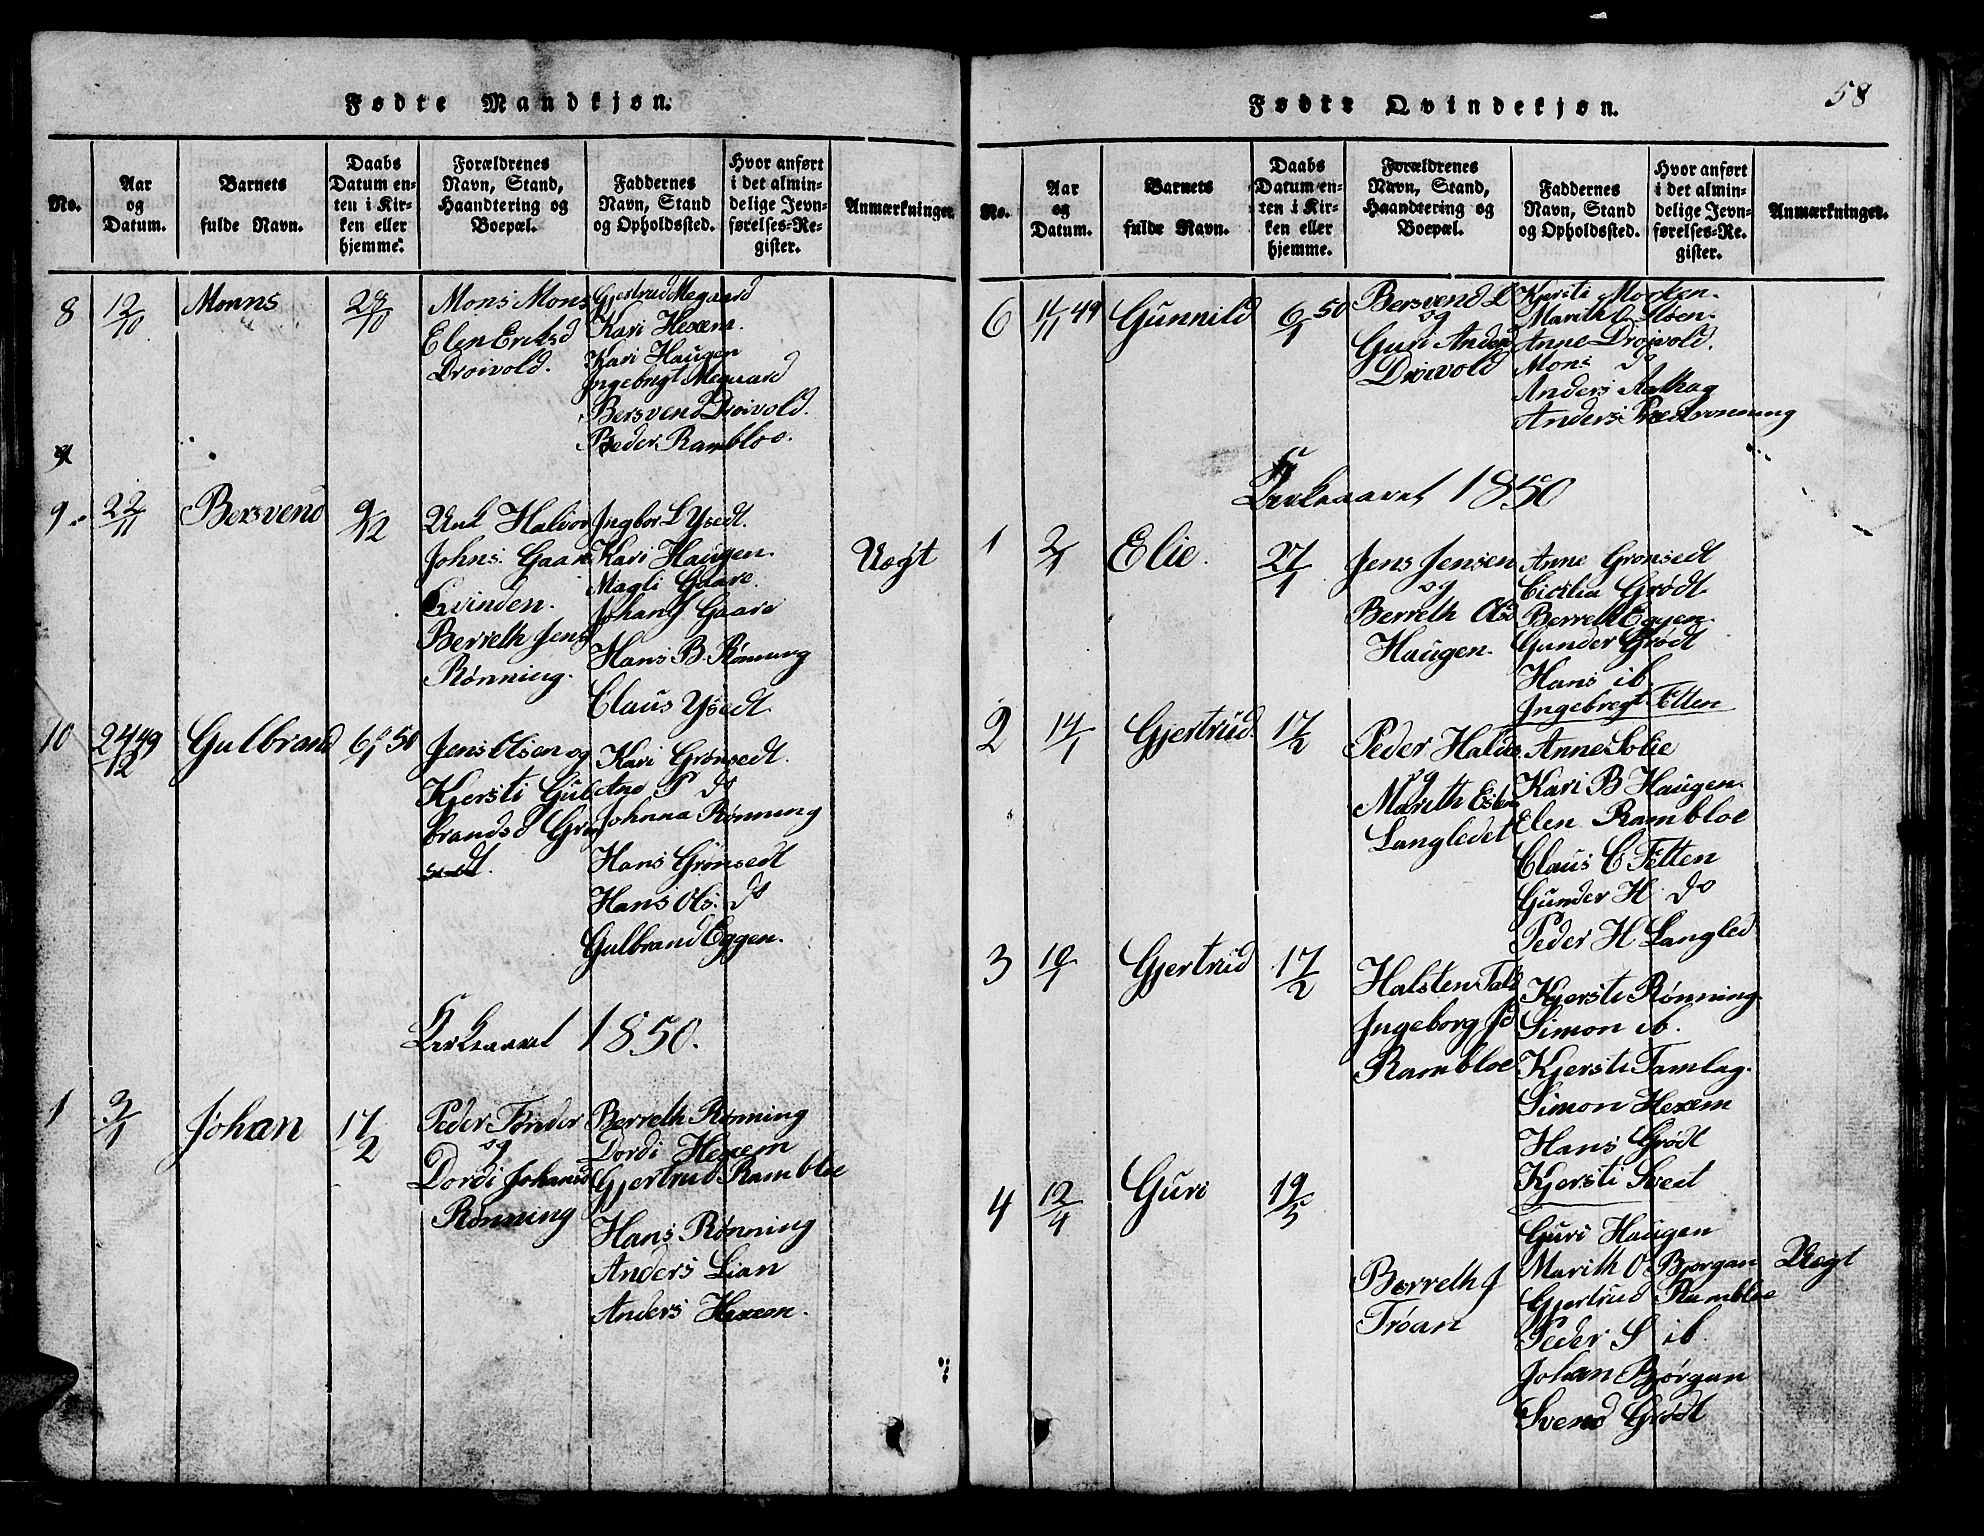 Fødte Mandkjøn.
No.
Aar og Datum.
Barnets fulde Navn.
Daabs Datum enten i Kirken eller hjemme.
Forældrenes Navn, Stand, Haandtering og Boepæl.
Faddernes Navn, Stand og Opholdssted.
Hvor anført i det almindelige Jevnførelses-Register.
Anmærkninger.
8 12/10 Monns 28/10
Mons Mons
Elen Eriksd
Droivold.
Gjertrud Megaard
Kari Hexem.
Kari Haugen
Ingebrigt Megaard
Bersvend Droivold.
Peder Rambloe.
9
9. 22/11 Bersvend 9/12
Unk Halvor
Johns. Gaare
Qvinden.
Berreth Jens
Rønning.
Ingbor L Ysedt.
Kari Haugen.
Magli Gaare.
Johan J Gaare
Hans B Rønning
Claus Ysedt
Uegt
10 24/12 49 Gulbrand 6/1 50
Jens Olsen og
Kjersti Gul
brandsd Grøn
sedt.
Kari Grønsedt.
Ane P do
Johnna Rønning
Hans Grønsedt
Hans Ols. do
Gulbrand Eggen.
Kirkeaaret 1850.
1 3/1 Johan 17/2
Peder Tønder
og
Dordi Johansd
Rønning
Berreth Rønning
Dordi Hexem
Gjertrud Rambloe
Hans Rønning
Anders Lian
Anders Hexem.
Fødte Qvindekjøn.
58
No.
Aar og Datum.
Barnets fulde Navn.
Daabs Datum enten i Kirken eller hjemme.
Forældrenes Navn, Stand, Haandtering og Boepæl.
Faddernes Navn, Stand og Opholdssted.
Hvor anført i det almindelige Jevnførelses-Register.
Anmærkninger.
6 11/11 49 Gunnild 6/1 50
Bersvend L
og
Guri Andersd
Droivold
Kjersti Morken.
Marith O Sloen.
Anne Droivold.
Mons do
Anders Aalhag
Anders
Kirkeaaret 1850
1 2/1 Elie. 27/1
Jens Jensen
og
Berreth Olsd
Haugen.
Anne Gronsedt
Cicilia Grødt
Berreth Eggen.
Gunder Grødt
Hans ib.
Ingebregt Fetten
2 14/1 Gjertrud 17/2
Peder Halds
og
Marith Estens
Langledet
Anne Solie
Kari B Haugen.
Elen Rambloe
Claus C Fetten
Gunder H. do
Peder H Langled
3 10/1 Gjertrud 17/2
Halsten Tals
Ingeborg Jd
Rambloe
Kjersti Rønning
Simon ib.
Kjersti Tamlag.
Simon Hexem
Hans Grødt
Kjersti Sveet
4 12/4 Guri 19/5
Berreth J
Trøan
Guri Haugen
Marith O Bjorgan
Gjertrud Rambloe
Peder S ib.
Johan Bjørgan
Svend Grødt
Uegt